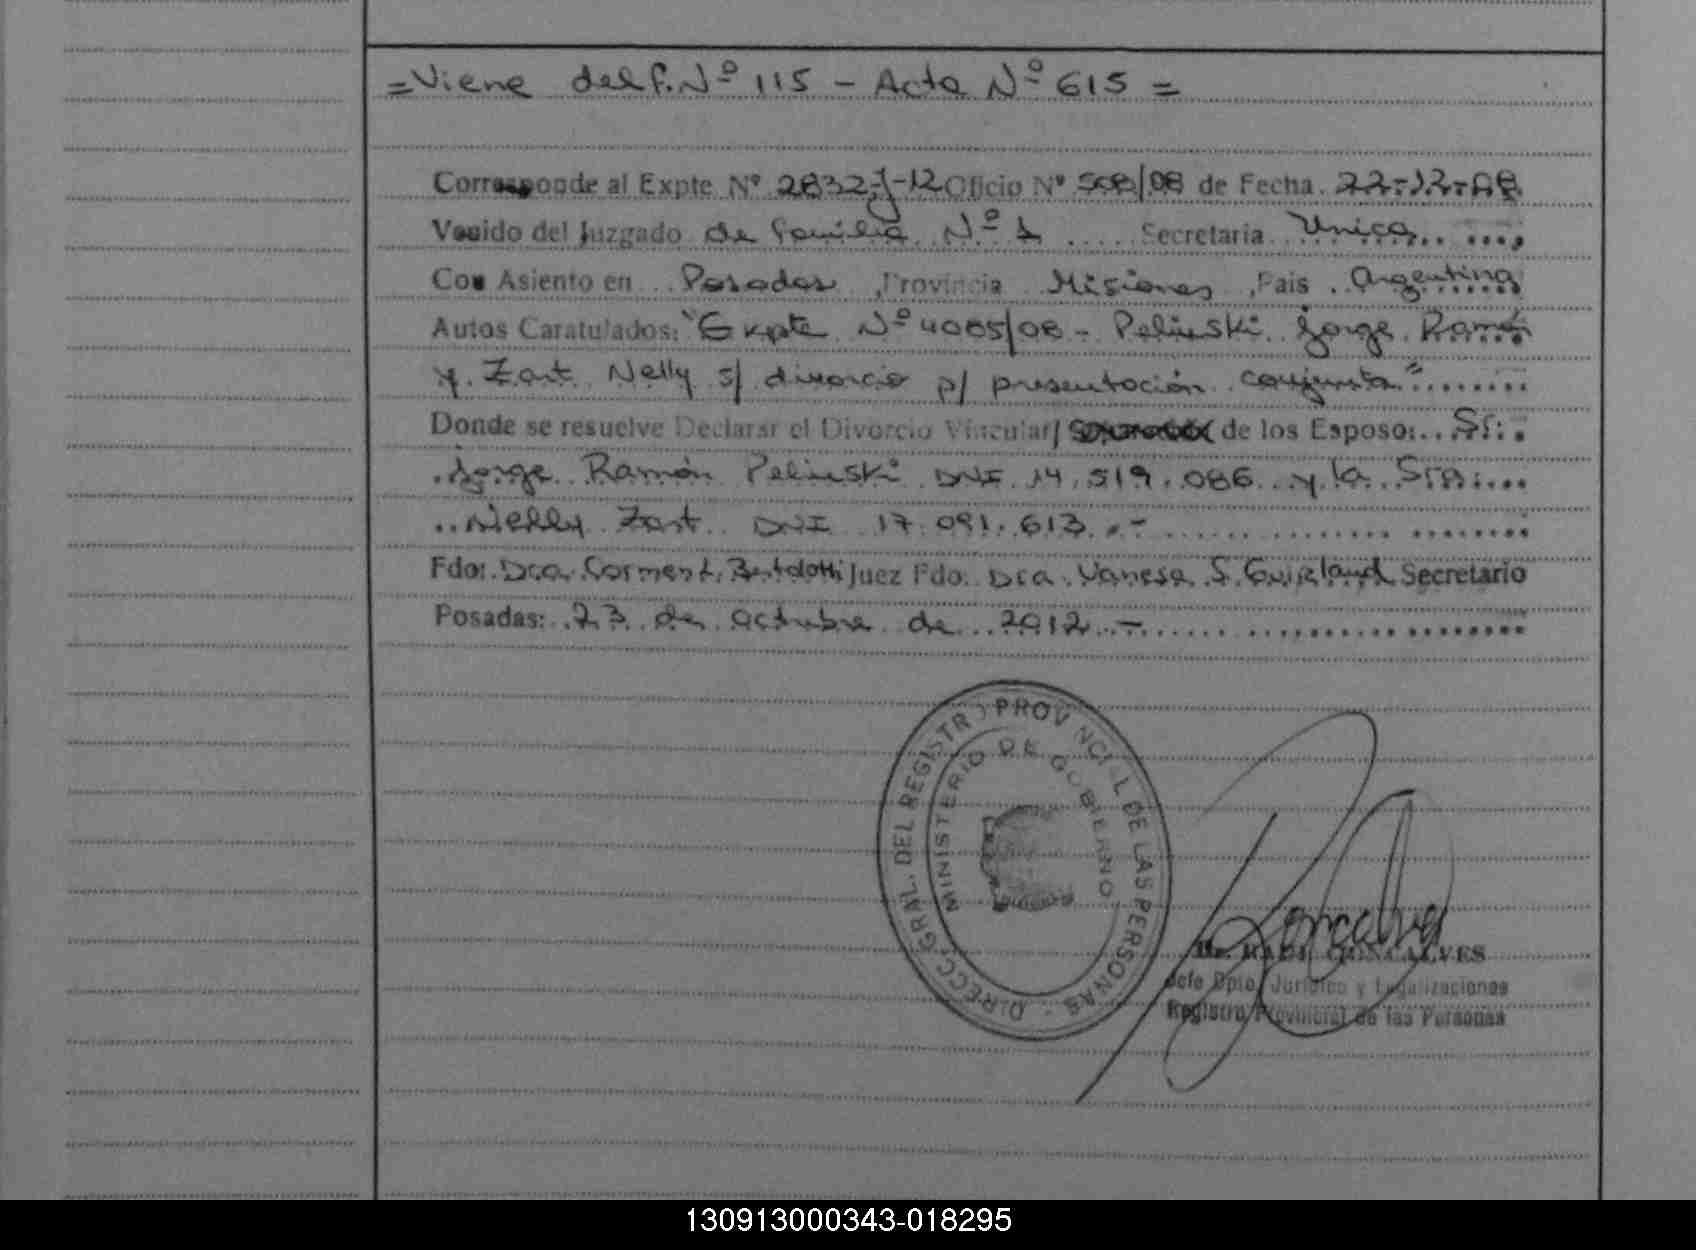 =Viene del f. Nº 115 - Acta Nº 615 =
Corresponde al Expte Nº 2832-J-12 Oficio Nº 508/08 de Fecha 22-12-08
Venido del Juzgado de Familia Nº 1 Secretaria Unica
Con Asiento en Posadas, Provincia Misiones, Pais Argentina
Autos Caratulados: "Expte Nº 4085/08 - Pelinski Jorge Ramón
y Zart Nelly s/ divorcio p/ presentación conjunta"
Donde se resuelve Declarar el Divorcio Vincular/ de los Esposos: Sr.
Jorge Ramón Pelinski DNI 14.519.086 y la Sra:
Nelly Zart DNI 17.091.613.-
Fdo: Dra. Carmen L. Bertolotti Juez Fdo: Dra. Vanesa S. Guirland Secretario
Posadas: 23 de octubre de 2012.-
DIRECC. GRAL. DEL REGISTRO PROVINCIAL DE LAS PERSONAS
MINISTERIO DE GOBIERNO
Dr. RAUL GONCALVES
Jefe Dpto. Jurídico y Legalizaciones
Registro Provincial de las Personas
130913000343-018295